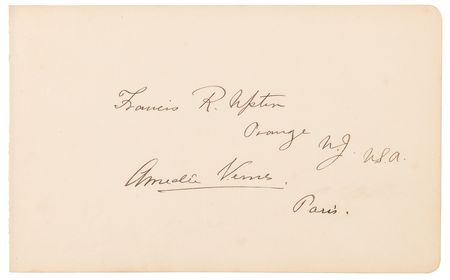 Francis R. Upton
Orange N.J. U.S.A.
Amedée Vernes.
Paris.